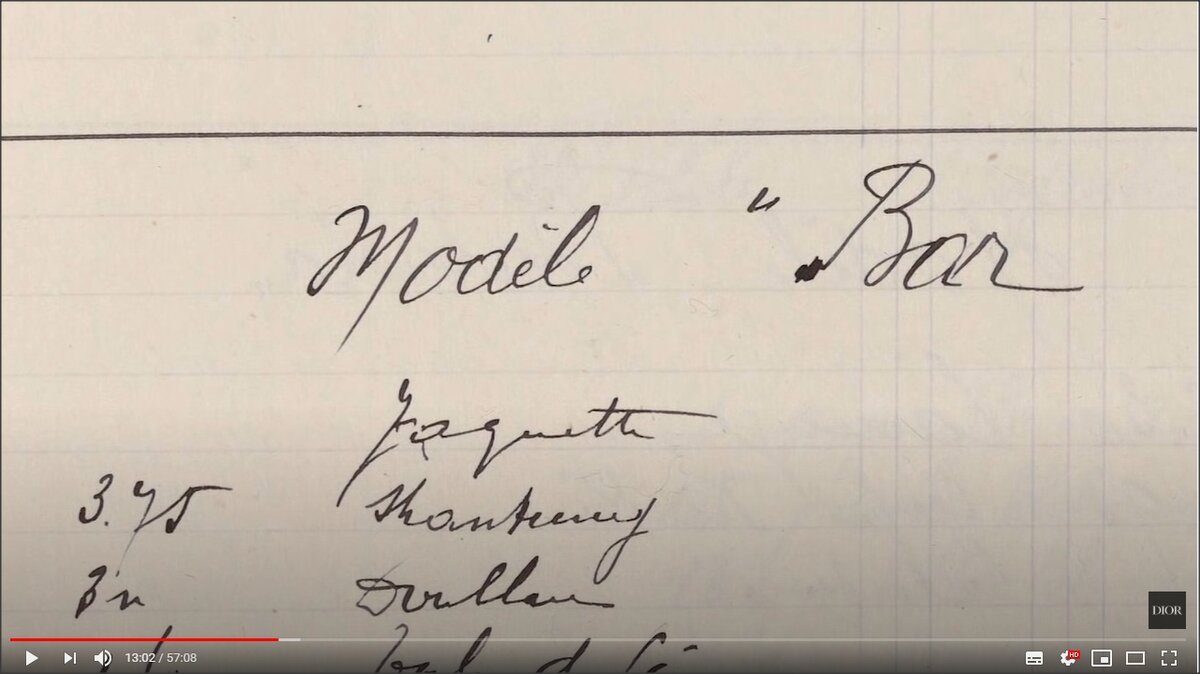 Modèle " Bar
Jaquette
3.75 Shantung
3 m Doublure
DIOR
13:02 / 57:08
HD